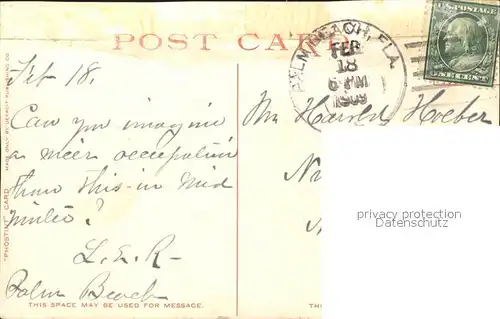 POST CARD
PALM BEACH, FLA.
FEB
18
6 PM
1909
U.S. POSTAGE
ONE CENT
Feb 18
Can you imagine
a nicer occupation
than this - in mid
winter?
L. E. R -
Palm Beach
THIS SPACE MAY BE USED FOR MESSAGE.
"PHOSTINT" CARD
MADE ONLY BY DETROIT PUBLISHING CO.
Harold
privacy protection
Datenschutz
TH